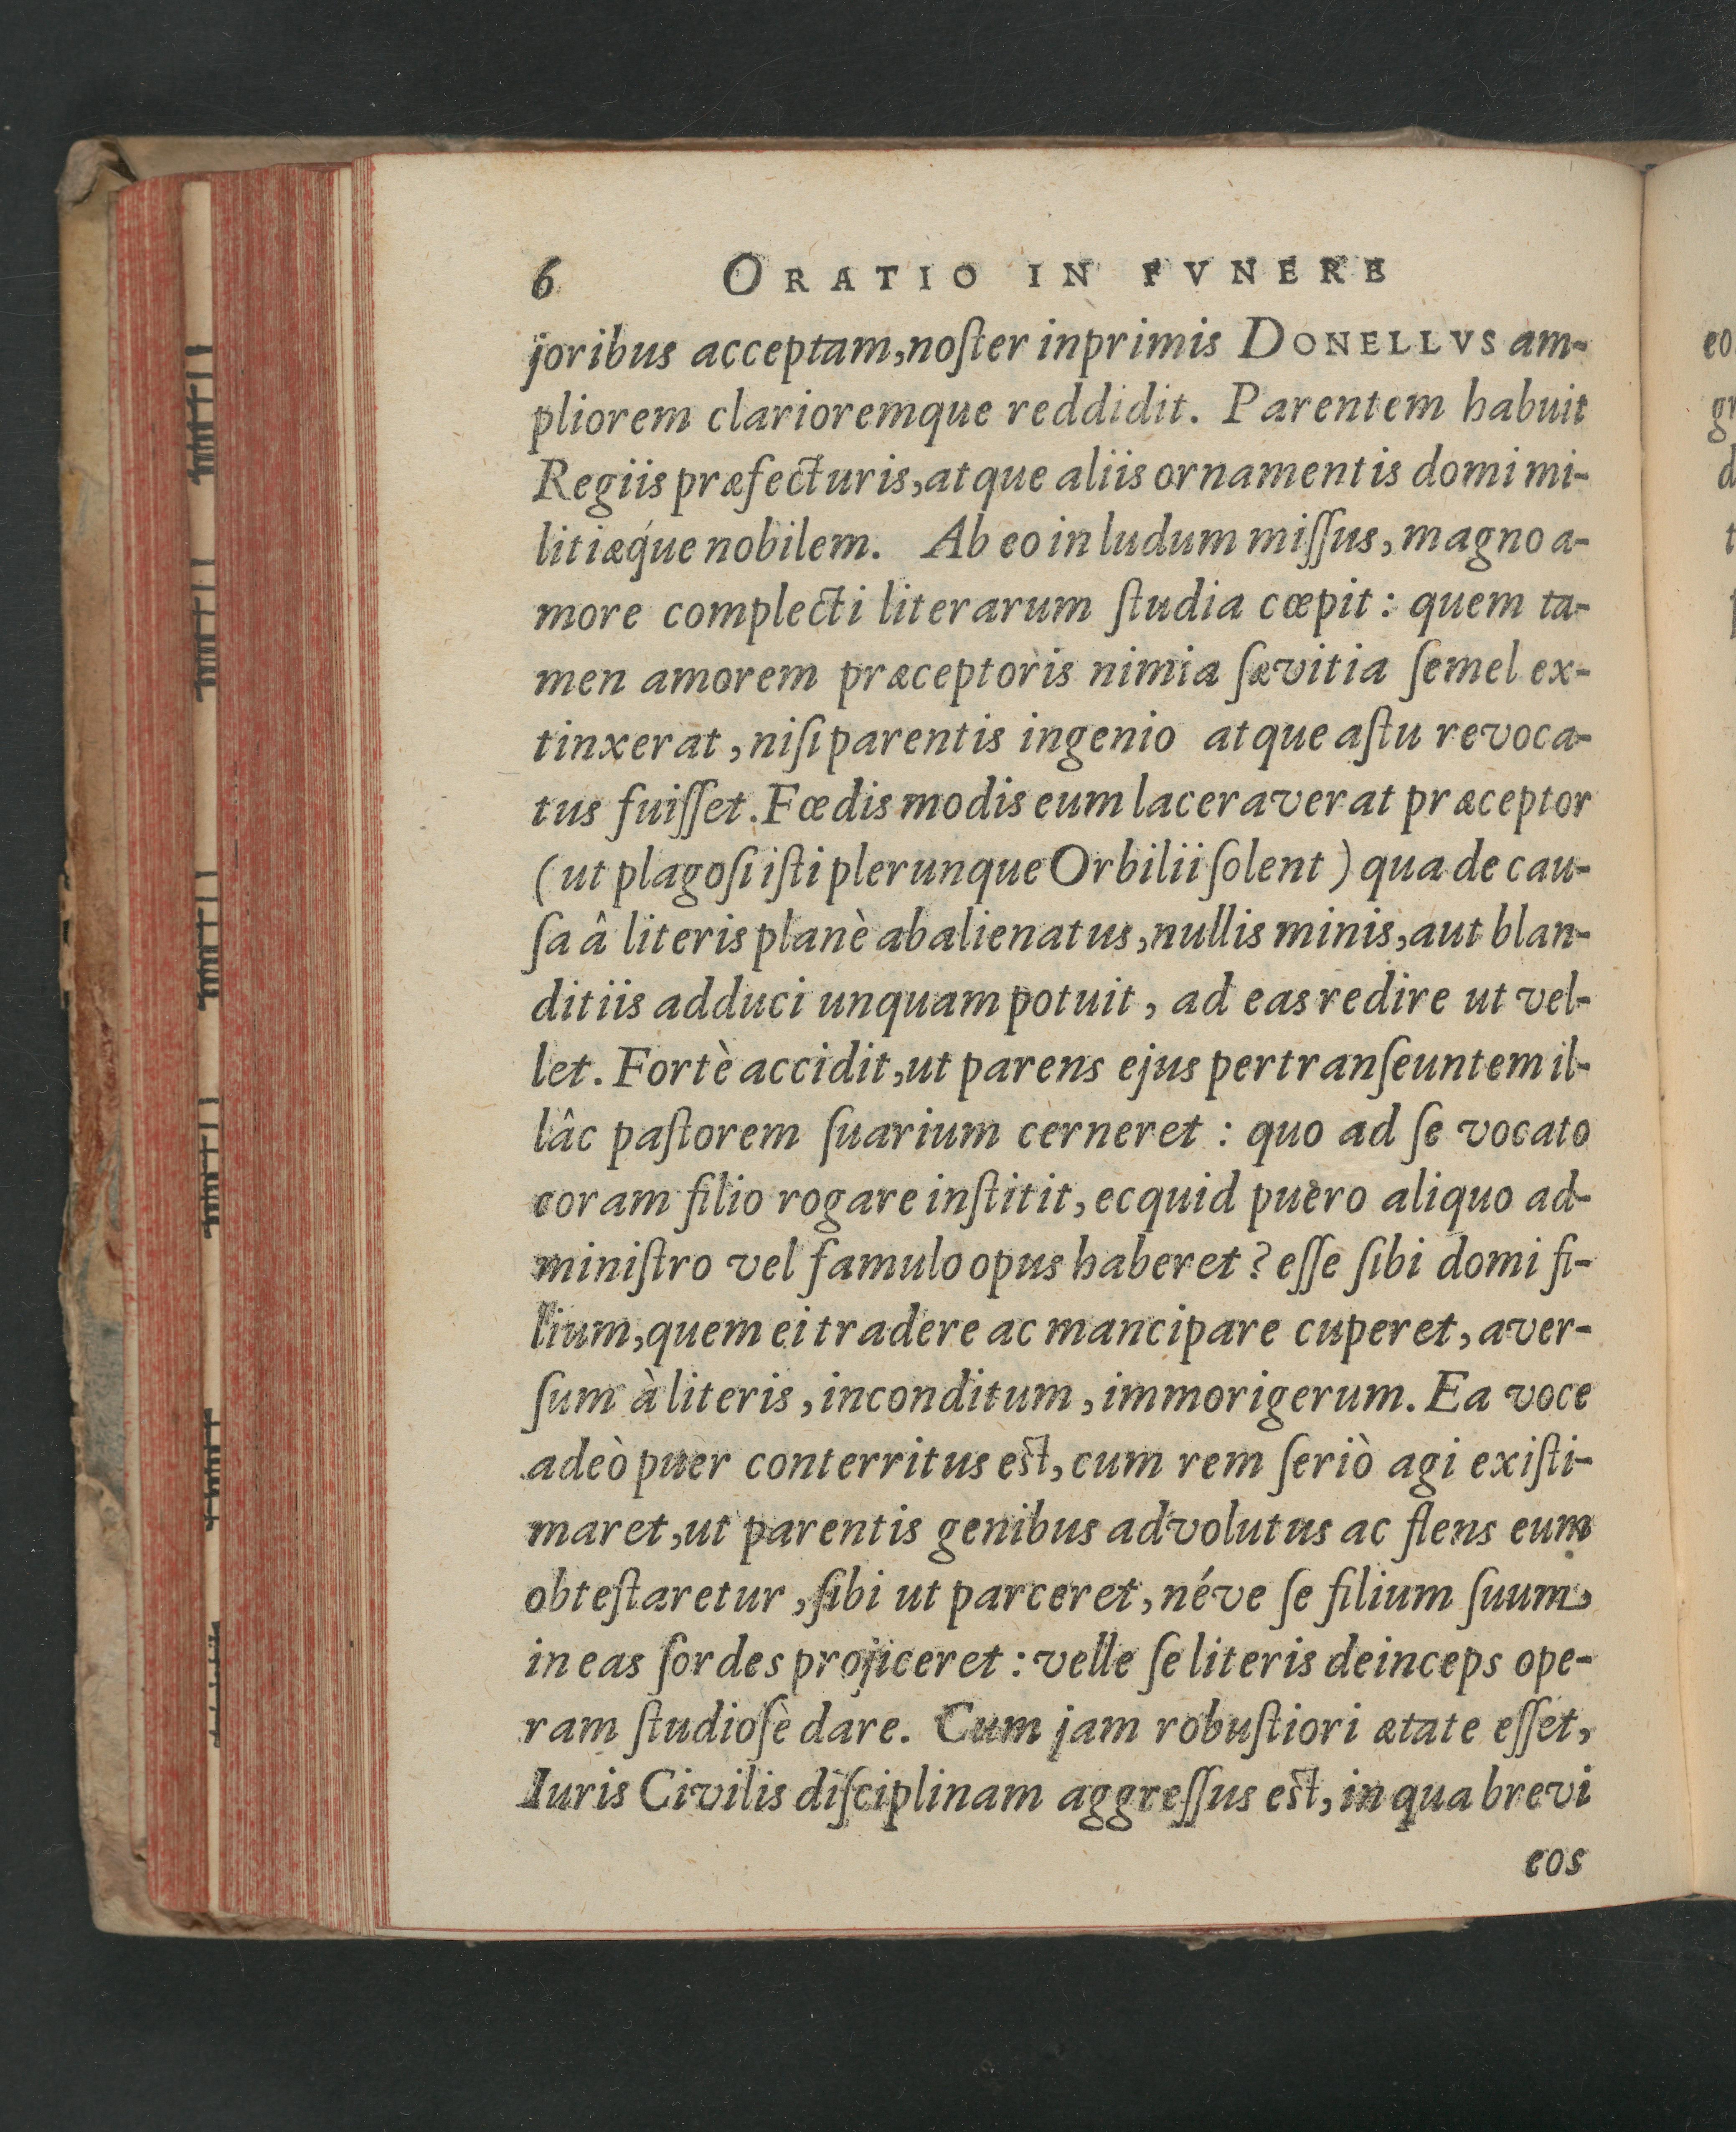 6 ORATIO IN FVNERE
joribus acceptam, noſter inprimis DONELLVS am-
pliorem clarioremque reddidit. Parentem habuit
Regiis præfecturis, atque aliis ornamentis domi mi-
litiæq́ue nobilem. Ab eo in ludum miſſus, magno a-
more complecti literarum ſtudia cœpit: quem ta-
men amorem præceptoris nimia ſævitia ſemel ex-
tinxerat, niſi parentis ingenio atque aſtu revoca-
tus fuiſſet. Fœdis modis eum laceraverat præceptor
(ut plagoſi iſti plerunque Orbilii ſolent) qua de cau-
ſa â literis planè abalienatus, nullis minis, aut blan-
ditiis adduci unquam potuit, ad eas redire ut vel-
let. Fortè accidit, ut parens ejus pertranſeuntem il-
lâc paſtorem ſuarium cerneret: quo ad ſe vocato
coram filio rogare inſtitit, ecquid puero aliquo ad-
miniſtro vel famulo opus haberet? eſſe ſibi domi fi-
lium, quem ei tradere ac mancipare cuperet, aver-
ſum à literis, inconditum, immorigerum. Ea voce
adeò puer conterritus eſt, cum rem ſeriò agi exiſti-
maret, ut parentis genibus advolutus ac flens eum
obteſtaretur, ſibi ut parceret, néve ſe filium ſuum,
in eas ſordes projiceret: velle ſe literis deinceps ope-
ram ſtudioſè dare. Cum jam robuſtiori ætate eſſet,
Iuris Civilis diſciplinam aggreſſus eſt, in qua brevi
eos